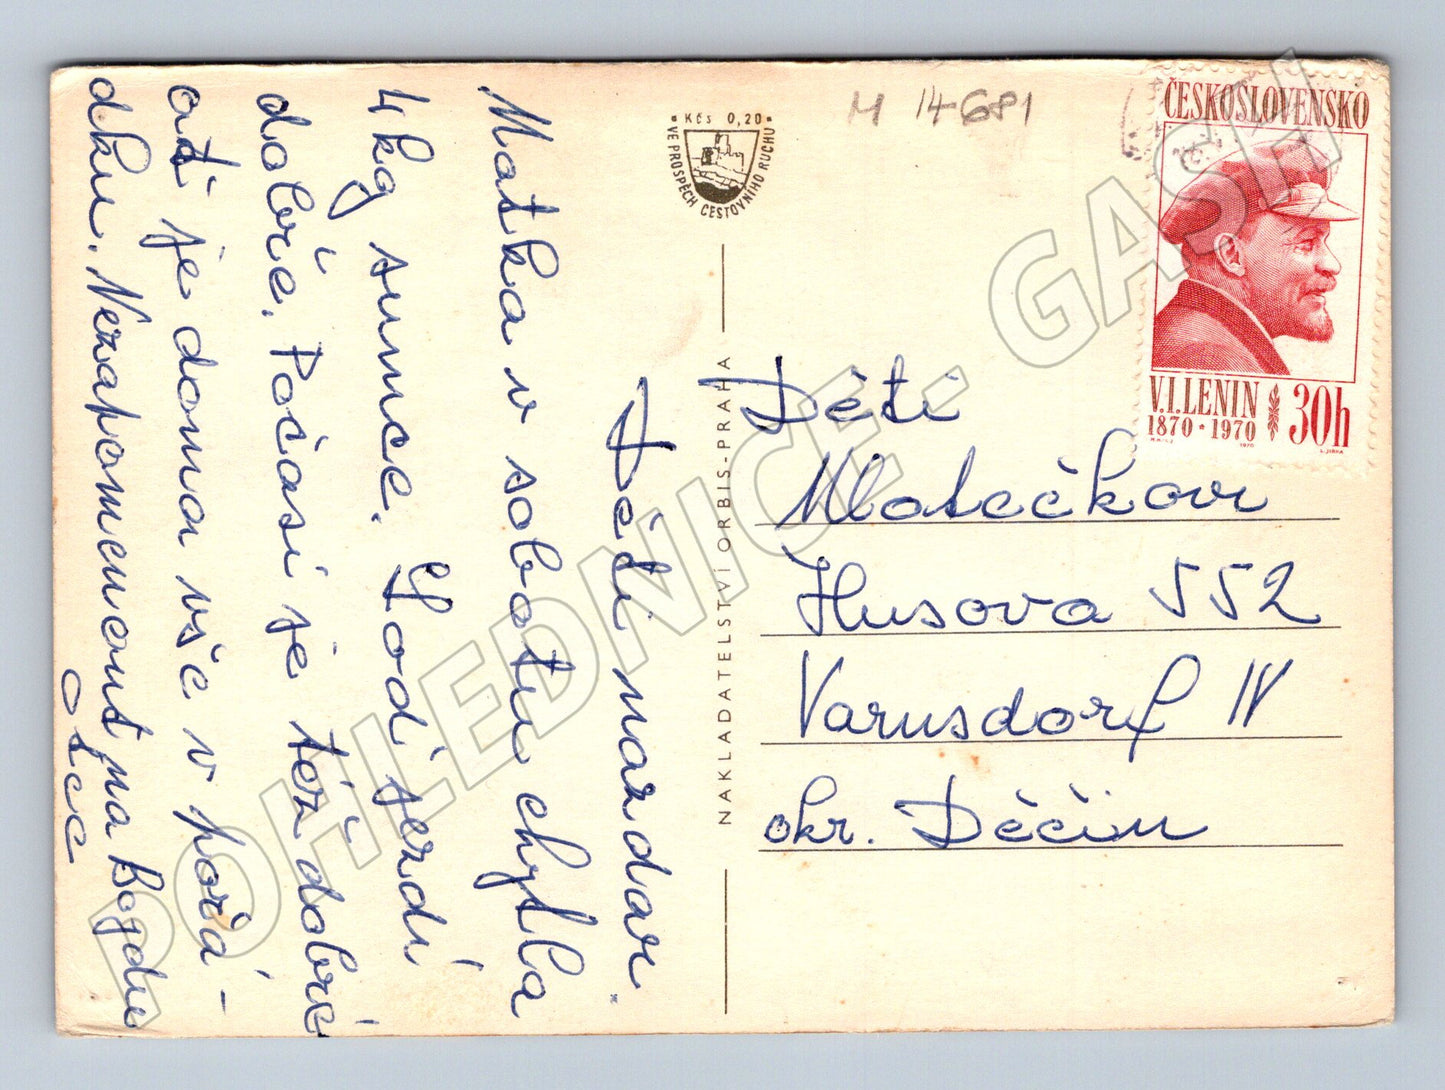 Děti nazdar.
Matka v sobotu chytla
4kg sumce. Lodí jezdí
dobře. Počasí je též dobré
ať je doma vše v pořá-
dku. Nezapomenout na Bogdu
Otec
Kčs 0,20
VE PROSPĚCH CESTOVNÍHO RUCHU
NAKLADATELSTVÍ ORBIS-PRAHA
M 14681
ČESKOSLOVENSKO
V.I.LENIN
1870 • 1970
30h
1970
L.JIRKA
Děti
Matečkovi
Husova 552
Varnsdorf IV
okr. Děčín
POHLEDNICE - GASH